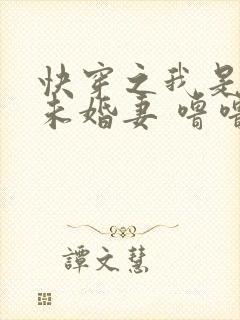 快穿之我是
未婚妻 嘚嘚
譚文慧